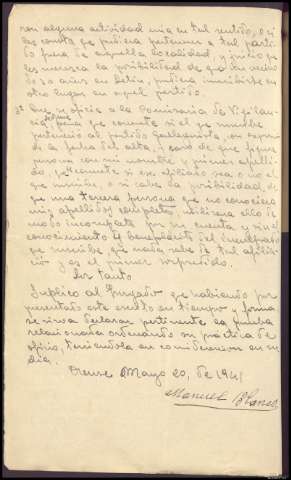 con alguna actividad mia en tal sentido, o si
les consta que pudiera pertenecer a tal parti-
do fuera de aquella localidad, y juicio que
les merezca la posibilidad de que un vecino
de 20 años en Letín, pudiera inscribirse en
otro lugar en aquel partido.
3º Que se oficie a la Comisaría de Vigilan-
cia para que comunite si el que suscribe
perteneció al partido Galleguista, con expresión
de la fecha del alta, y caso de que figure
persona con mi nombre y primer apelli-
do, que comunite si ese afiliado sea o no el
que suscribe, o si cabe la posibilidad, de
que una tercera persona que no conociera
mis apellidos completos, utilizara ellos de
modo incompleto por su cuenta y sin el
conocimiento y beneplacito del inculpado
que suscribe, que nada sabe de tal afilia-
ción y es el primer sorprendido.
Por tanto
Suplico al Juzgado que habiendo por
presentado este escrito en tiempo y forma
se sirva declarar pertinente la prueba
relacionada ordenando su práctica de
oficio, teniendola en consideracion en su
dia.
Orense Mayo 20, de 1941
Manuel Blanco